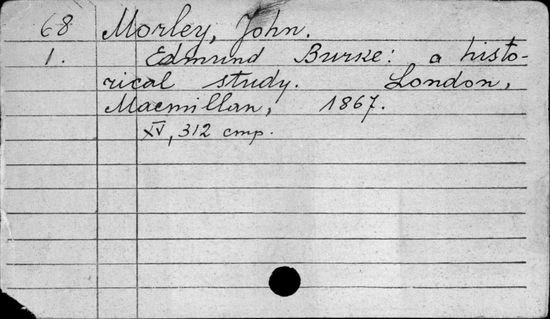 68 Morley, John.
1. Edmund Burke: a histo-
rical study. London,
Macmillan, 1867.
XV, 312 cmp.